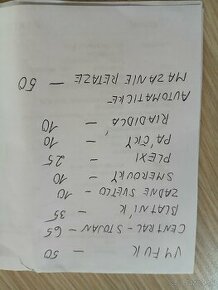 VÝFUK — 50
CENTRAL - STOJAN - 65
BLATNÍK — 35
ZADNE SVETLO — 10
SMEROVKY — 10
PLEXI — 25
PÁČKY — 10
RIADIDLÁ — 10
AUTOMATICKÉ
MAZANIE REŤAZE — 50